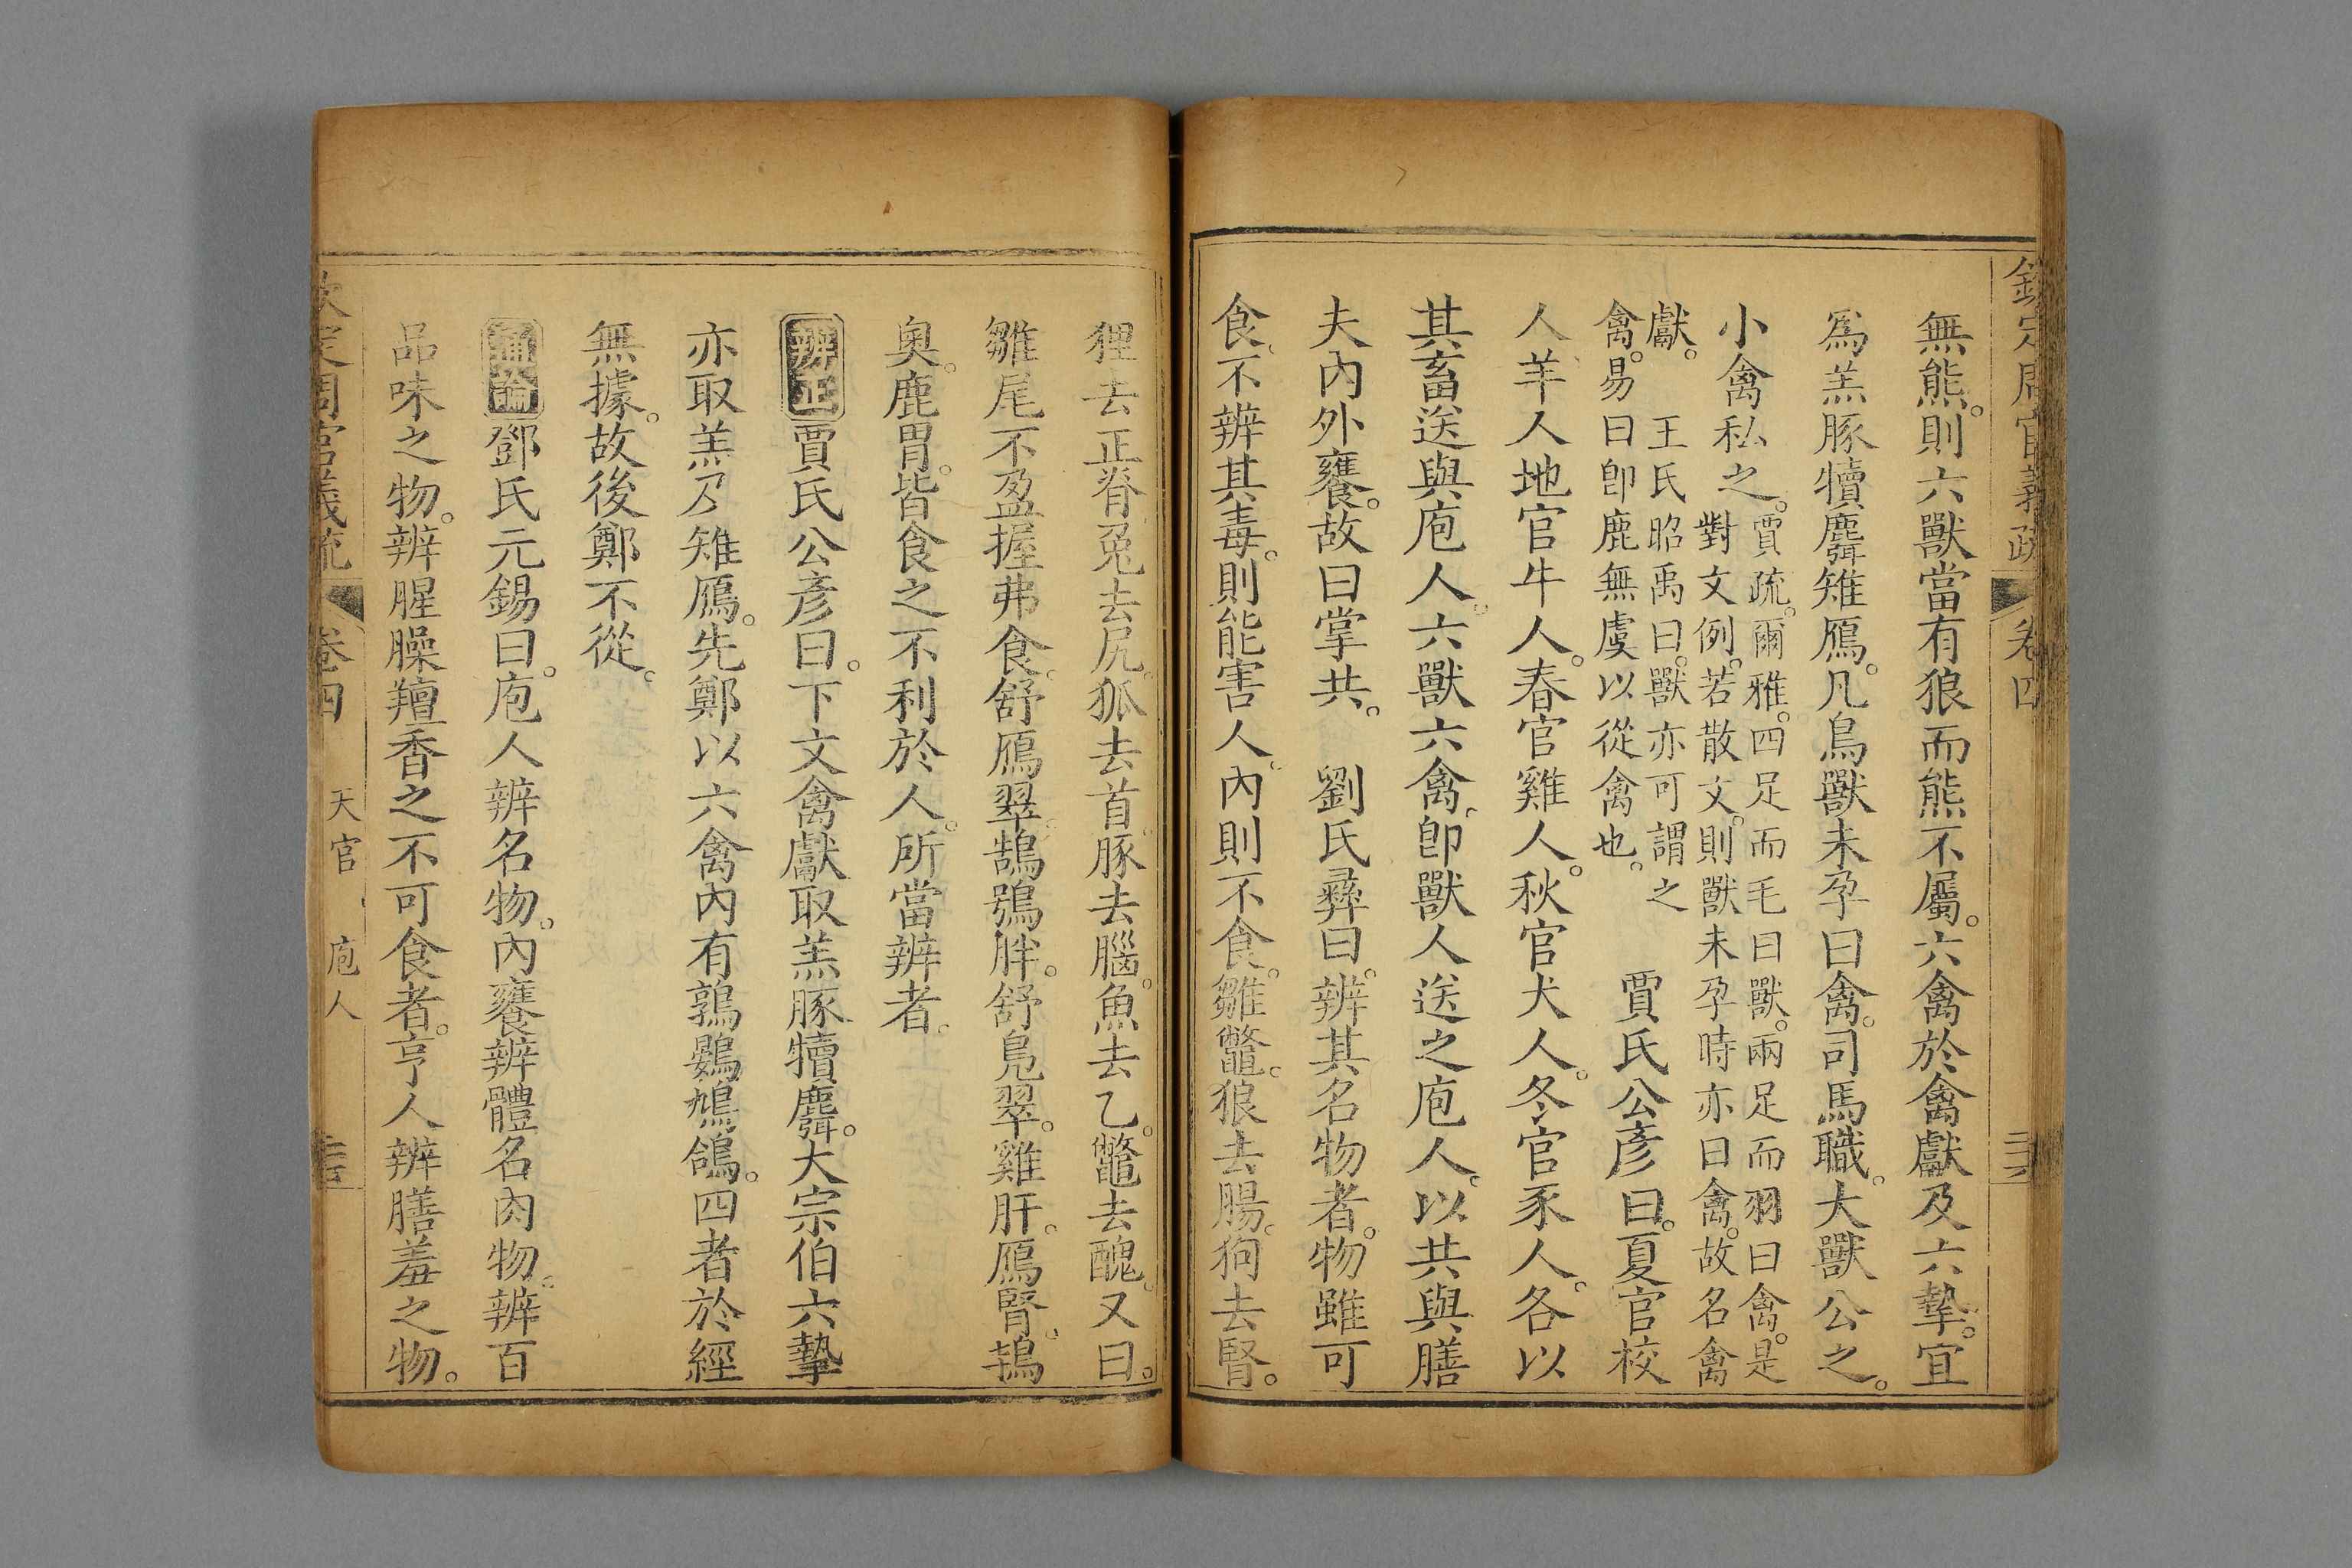 欽定周官義疏 卷四
無熊。則六獸當有狼而熊不屬。六禽於禽獻及六摯。宜
爲羔豚犢麛雉鴈。凡鳥獸未孕曰禽。司馬職。大獸公之。
小禽私之。賈疏。爾雅。四足而毛曰獸。兩足而羽曰禽。是
對文例。若散文。則獸未孕時亦曰禽。故名禽
獻。 王氏昭禹曰。獸亦可謂之
禽。易曰卽鹿無虞以從禽也。 賈氏公彥曰。夏官校
人羊人地官牛人。春官雞人。秋官犬人。冬官豕人。各以
其畜送與庖人。六獸六禽。卽獸人送之庖人。以共與膳
夫內外饔。故曰掌共。 劉氏彝曰。辨其名物者。物雖可
食、不辨其毒。則能害人。內則不食。雛鼈。狼去腸。狗去腎。
狸去正脊兔去尻。狐去首。豚去腦。魚去乙。鼈去醜。又曰。
雛尾不盈握弗食。舒鴈翠。鵠鴞胖。舒鳧翠。雞肝。鴈腎。鴇
奧。鹿胃。皆食之不利於人。所當辨者。
辨正賈氏公彥曰。下文禽獻取羔豚犢麛。大宗伯六摯
亦取羔及雉鴈。先鄭以六禽內有鶉鷃鳩鴿。四者於經
無據。故後鄭不從。
總論鄧氏元錫曰。庖人辨名物。內饔辨體名肉物。辨百
品味之物。辨腥臊羶香之不可食者。亨人辨膳羞之物。
欽定周官義疏 卷四 天官 庖人